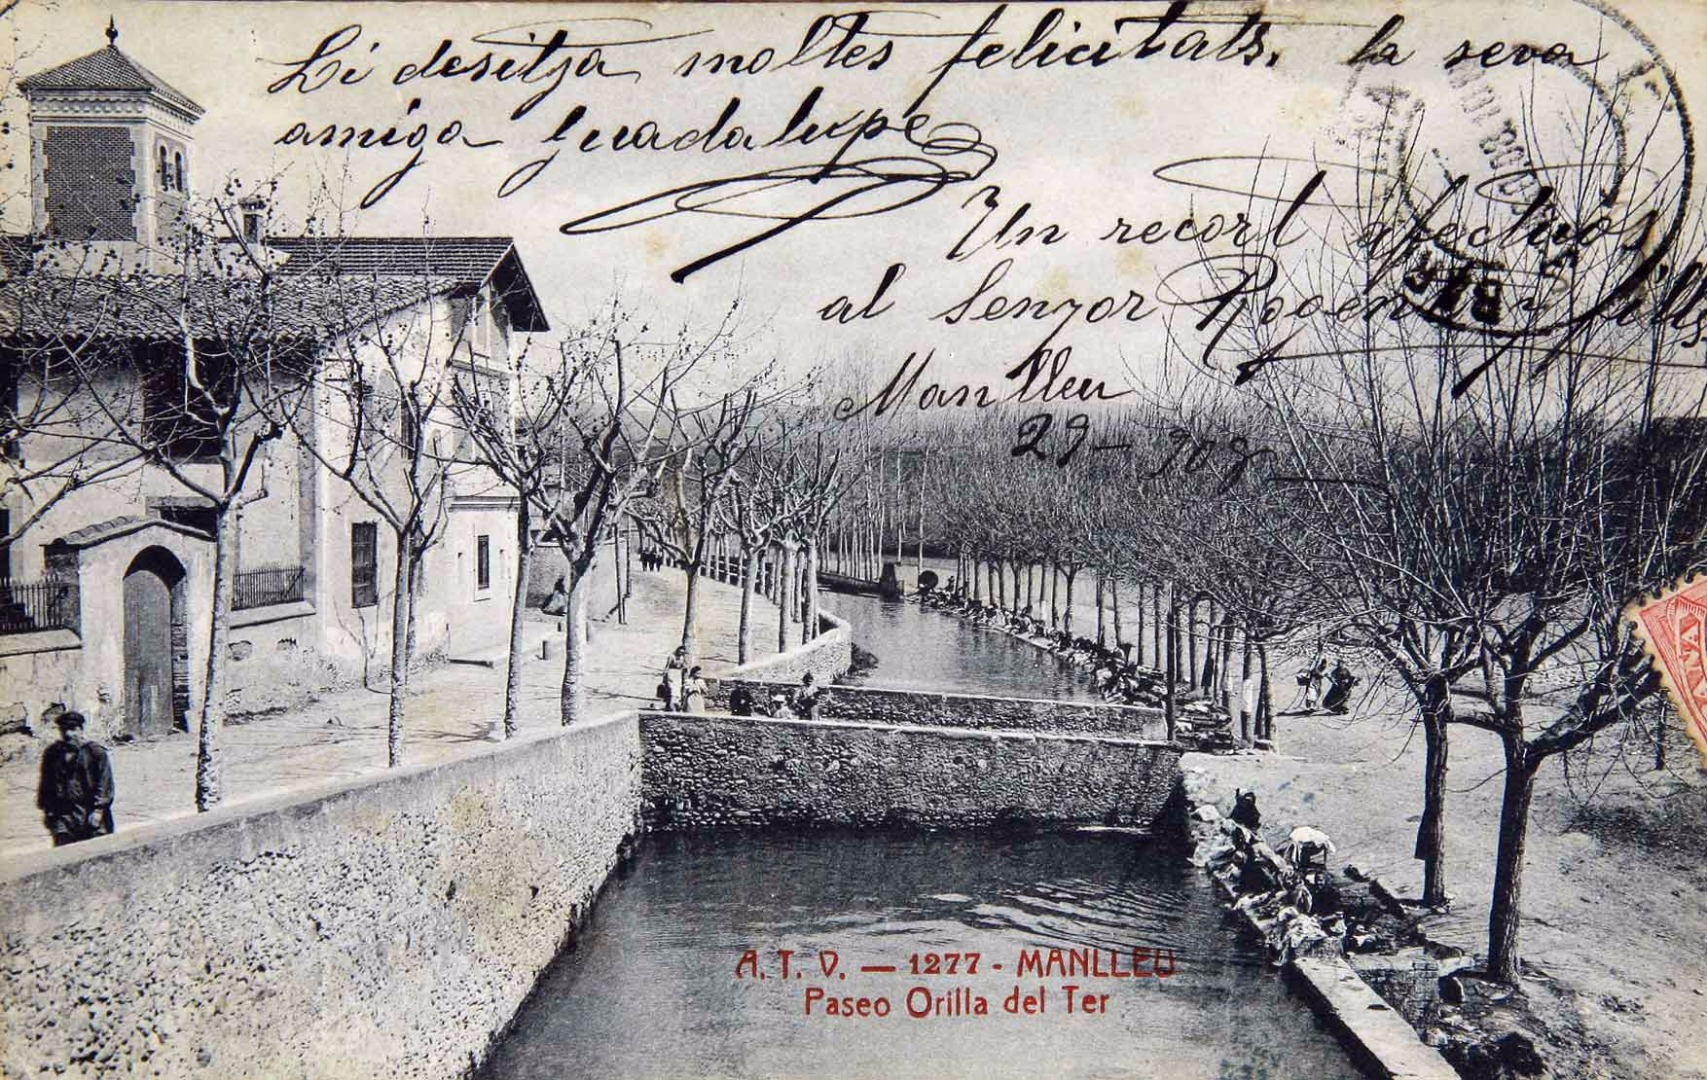 Li desitja moltes felicitats. la seva
amiga Guadalupe
Un recort afectuós
al Senyor
Manlleu
29- 909
A. T. V. — 1277 - MANLLEU
Paseo Orilla del Ter